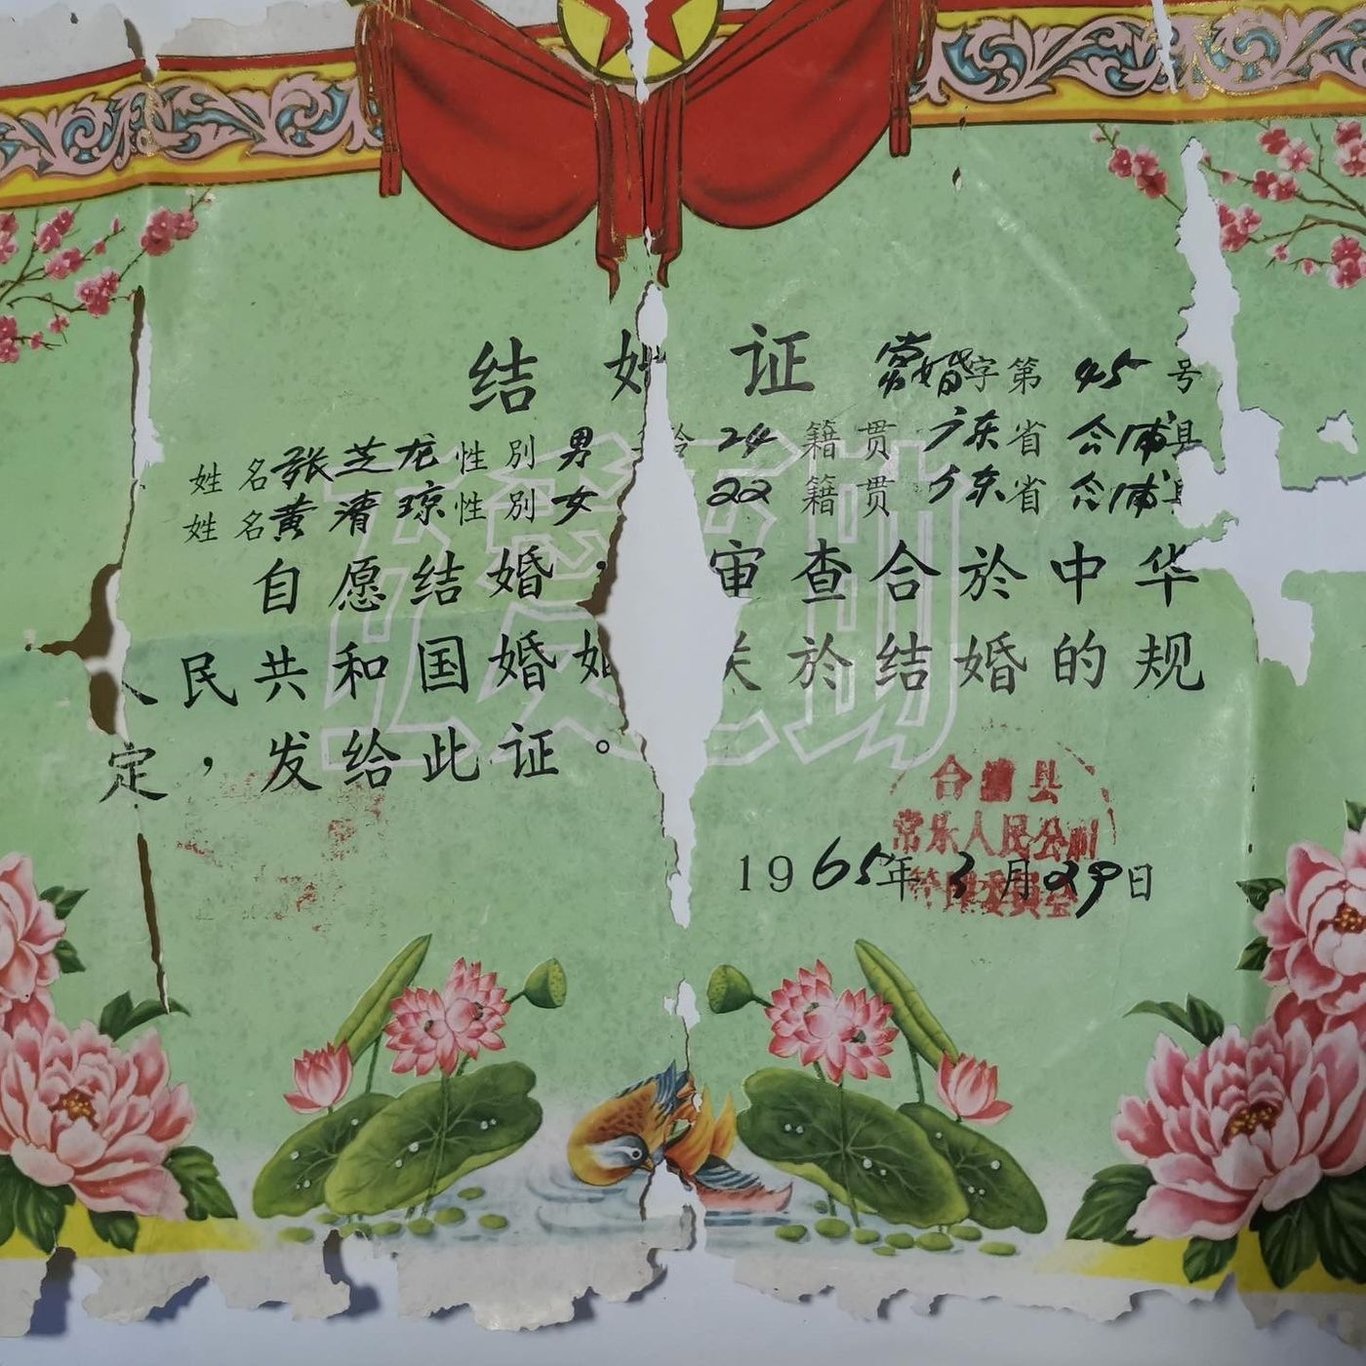 结 婚 证 常婚字第 45 号
姓名 张芝龙 性別 男 龄 24 籍贯 广东省 合浦县
姓名 黄清琼 性別 女 22 籍贯 广东省 合浦县
自愿结婚，审查合於中华
人民共和国婚姻关於结婚的规
定，发给此证。
互爱互助
合浦县
常乐人民公社
管理委员会
1965年3月29日